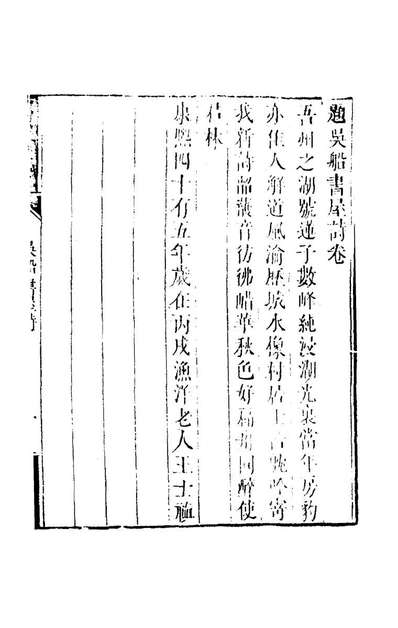 題吳船書屋詩卷
吾州之湖號蓮子數峰純浸湖光裏當年房豹
亦佳人解道風淪歷城水像村居士吟寄
我新詩韶濩音彷彿蜡華秋色好扁舟同醉使
君林
康熙四十有五年歲在丙戌漁洋老人王士
吳船書屋詩